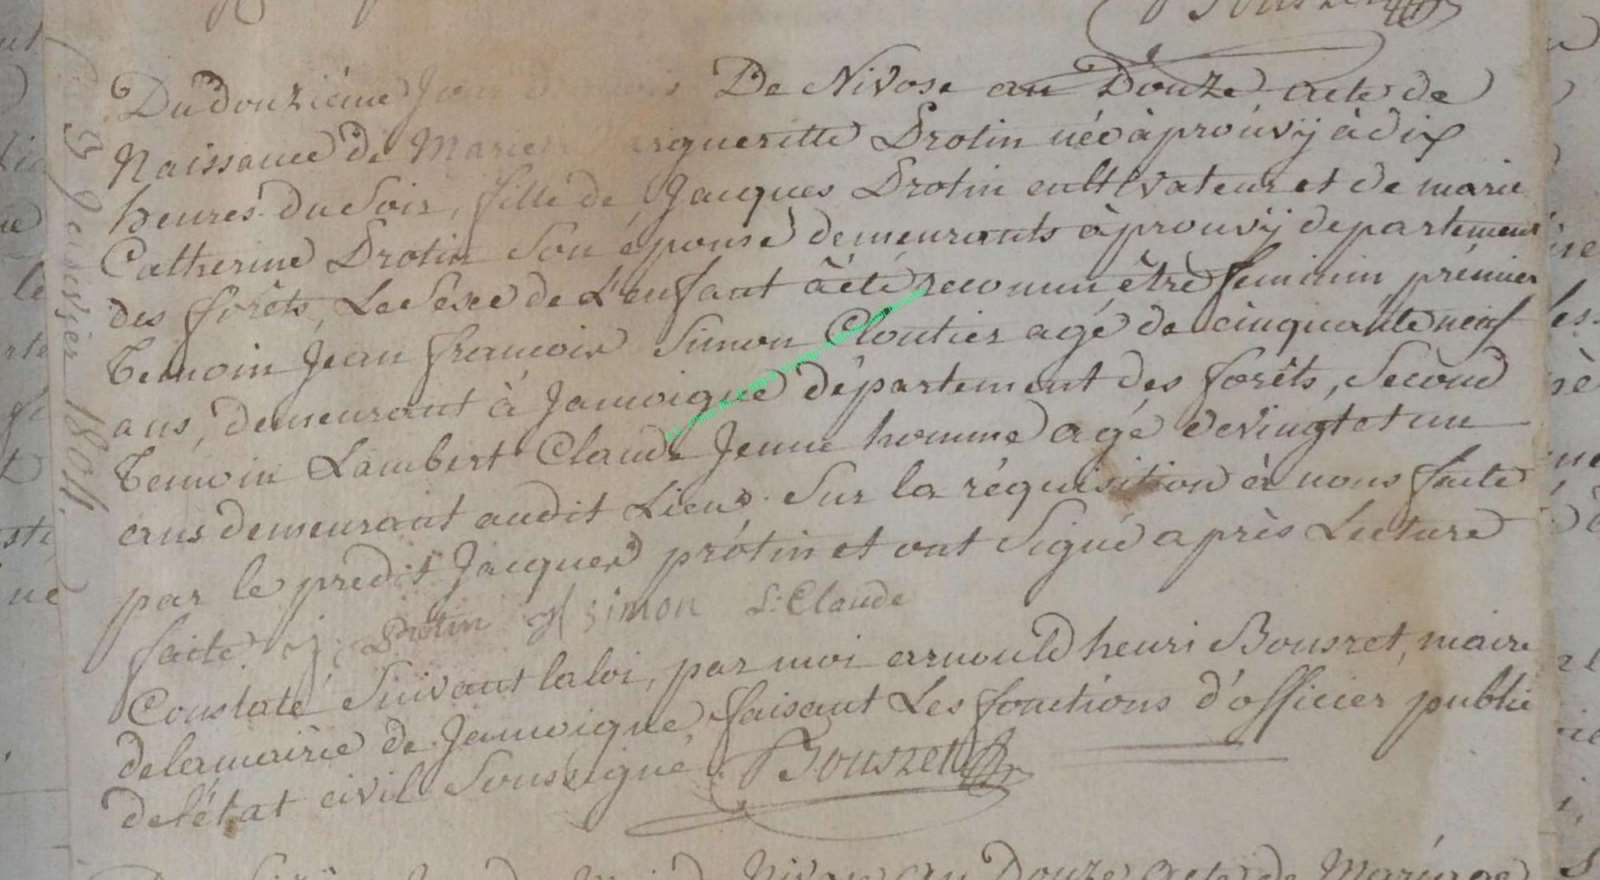 Du douzième Jour du mois De Nivose an Douze acte de
Naissance de Marie Margueritte Protin née à prouvÿ à dix
heures du Soir, fille de Jacques Protin cultivateur et de marie
Catherine Protin Son épouse demeurants à prouvÿ departement
des forêts, Le Sexe de L'enfant à été reconnu être feminin prémier
Temoin Jean francois Simon Cloutier agé de cinquante neuf
ans, demeurant à Jamoigne département des forêts, Second
Temoin Lambert Claude Jeune homme agé de vingt et un
ans demeurant audit Lieu. Sur la réquisition à nous faite
par le predit Jacques protin et ont Signé après Lecture
faite. j: Protin Jf simon L: Claude
Constaté Suivant la loi, par moi arnould henri Bouszet, maire
de la mairie de Jamoigne faisant Les fonctions d'officier public
de l'état civil Soussigné Bouszet
Janvier 1804.